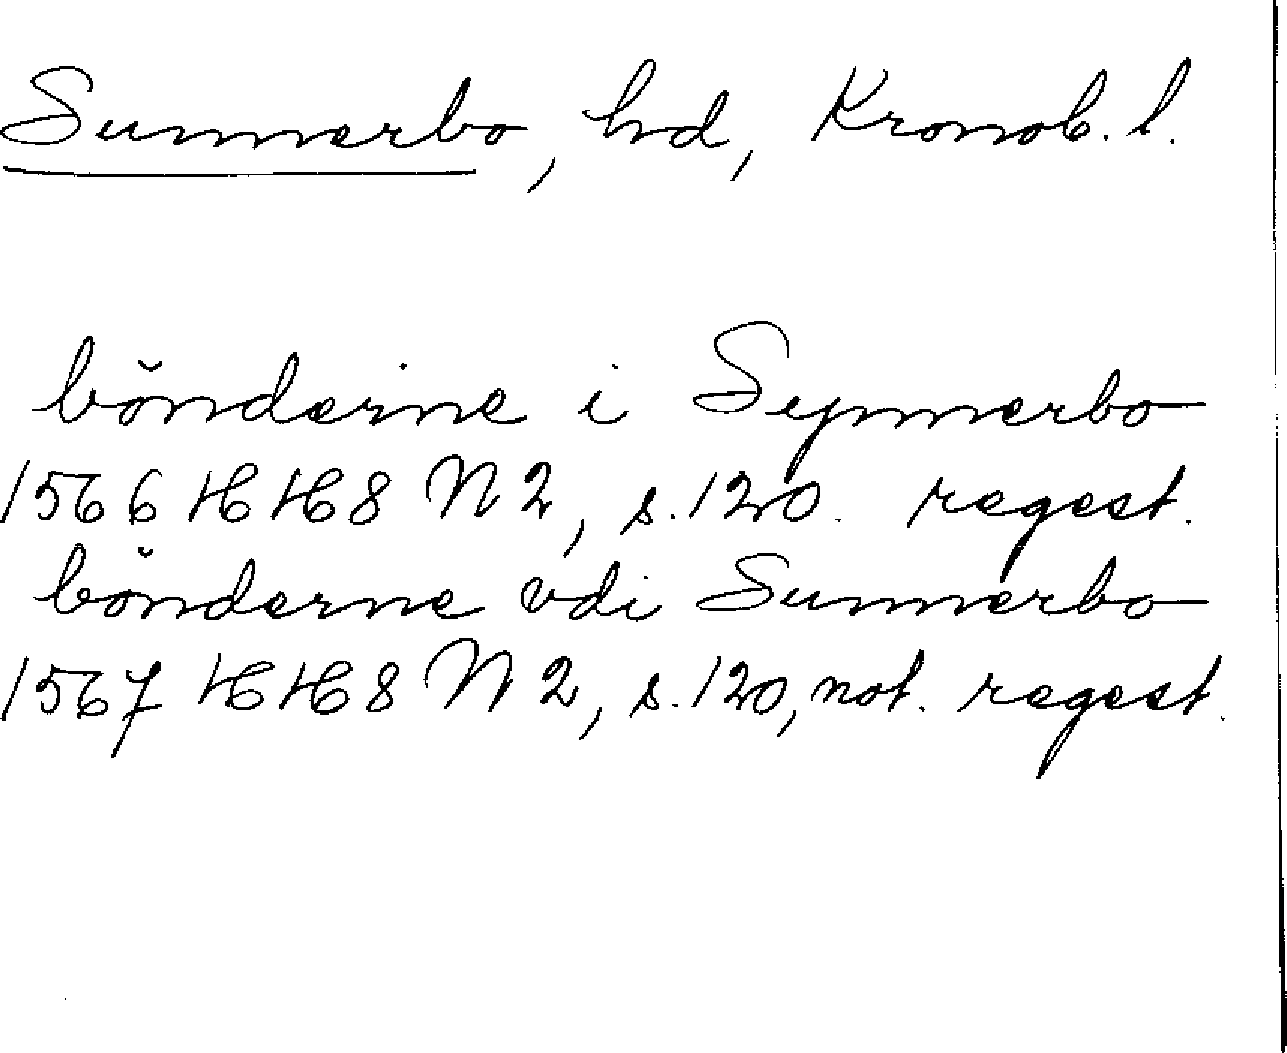 Sunnerbo, hd, Kronob. l.
bönderine i Synnerbo
1566 HH8 N 2, s. 120. regest.
bönderne vdi Sunnerbo
1567 HH8 N 2, s. 120, not. regest.